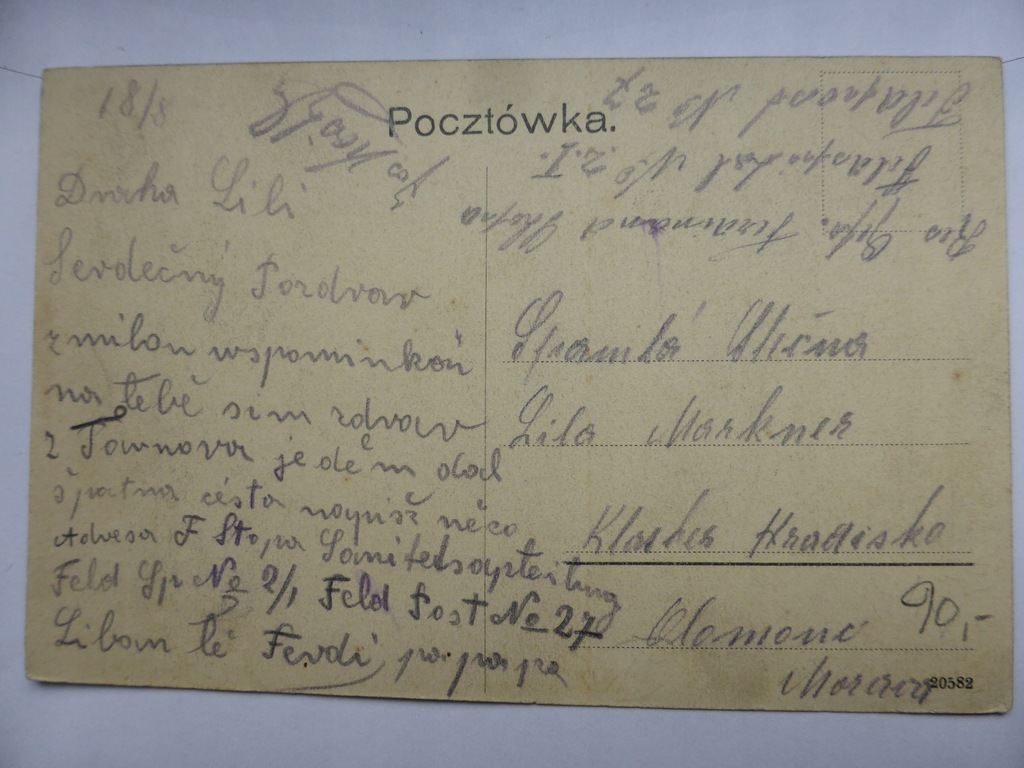 18/8
Pocztówka.
Draha Lili
Serdečný Pozdrav
z milou wspominkoú
na tebě sem zdrav
z Tarnova jeděm dál
špatna césta napišž něco
Adresa F Stopa Sanitetsapteilung
Feld Sp No 2/1 Feld Post No 27
Libam tě Ferdi pa pa pa
Feldspital No 2. I.
Ferdinand Stopa
Lila Markner
Klaster Hradisko
Olomouc
Morava
90,-
20582